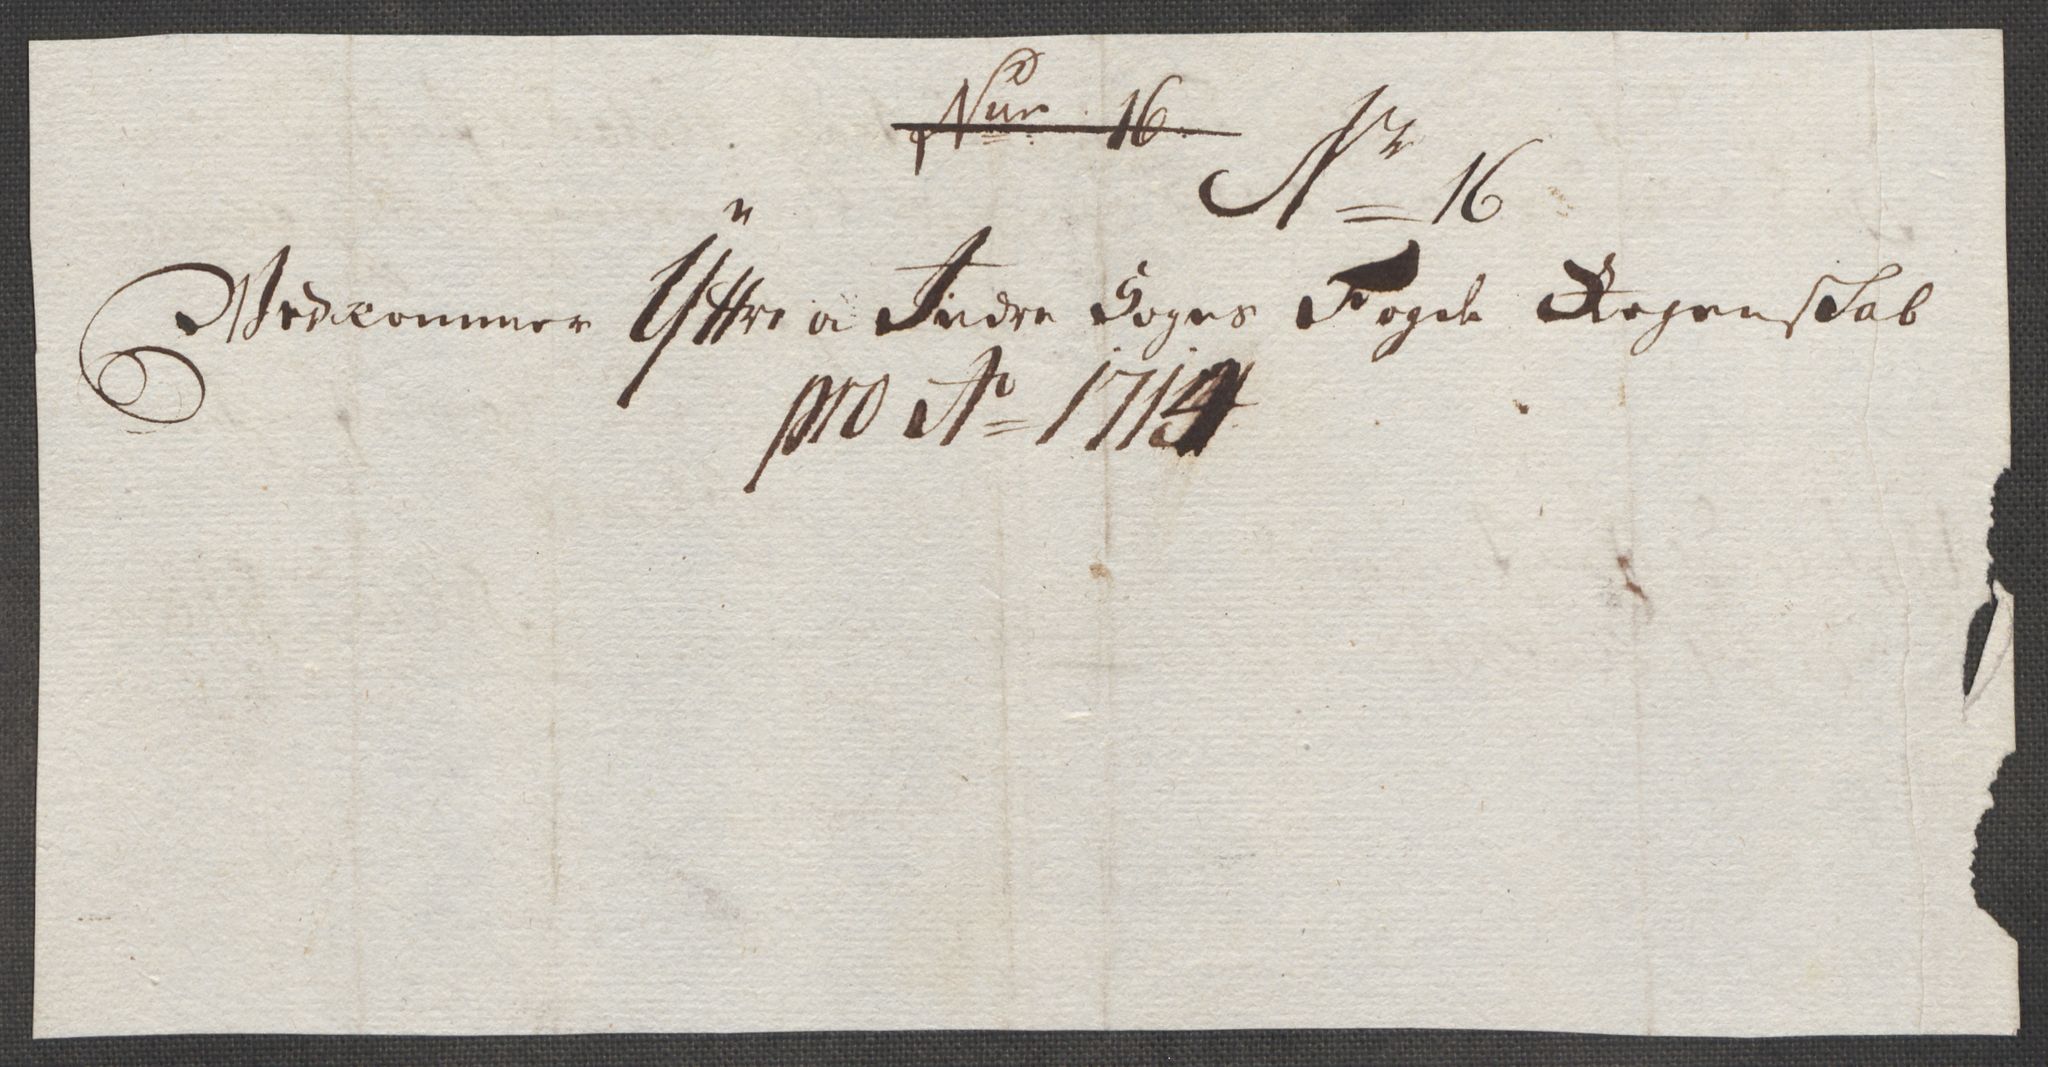 Num 16.
Nr 16
Vedkommer Ÿttre a Indre Sogns Fogde Regenskab
pro Ao 1714